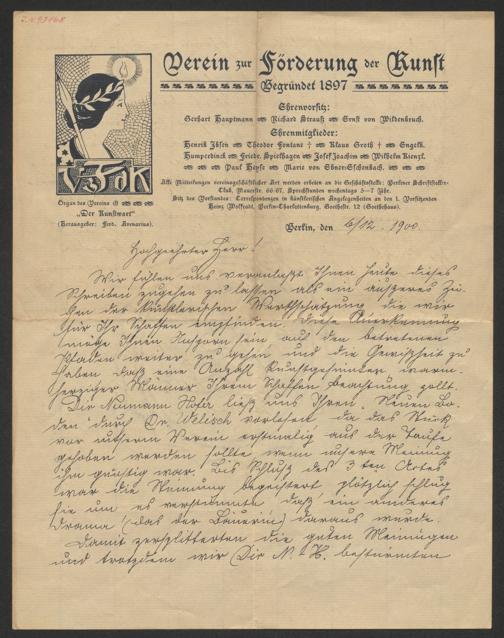 J.N. 93168
Verein zur Förderung der Kunst
Begründet 1897
V z F d K
Ehrenvorsitz:
Gerhart Hauptmann Richard Strauß Ernst von Wildenbruch.
Ehrenmitglieder:
Henrik Ibsen Theodor Fontane † Klaus Groth † Engelb.
Humperdinck Friedr. Spielhagen Josef Joachim Wilhelm Kienzl.
Paul Heyse Marie von Ebner-Eschenbach.
Alle Mitteilungen vereinsgeschäftlicher Art werden erbeten an die Geschäftsstelle: Berliner Schriftsteller-
Club, Mauerstr. 66-67, Sprechstunden wochentags 5—7 Uhr.
Sitz des Vorstandes: Correspondenzen in künstlerischen Angelegenheiten an den 1. Vorsitzenden
Heinz Wolfradt, Berlin-Charlottenburg, Goethestr. 12 (Goethehaus).
Organ des Vereins ist
„Der Kunstwart"
(Herausgeber: Ferd. Avenarius).
Berlin, den 6/12. 1900
Hochgeehrter Herr!
Wir fühlen uns veranlaßt Ihnen heute dieses
Schreiben zugehen zu lassen als ein äußeres Zei-
chen der künstlerischen Werthschätzung die wir
für Ihr Schaffen empfinden. Diese Anerkennung
möge Ihnen Ansporn sein, auf den betretenen
Pfaden weiter zu gehen und die Gewißheit zu
haben daß eine Anzahl kunstgesinnten warm-
herziger Männer Ihrem Schaffen Beachtung zollt.
Dir Neumann Hofer ließ uns Ihren Neuen Bo-
den durch Dr. Welisch vorlesen, da das Stück
vor unserm Verein erstmalig aus der Taufe
gehoben werden sollte, wenn unsere Meinung
ihm günstig war. Bis Schluß des 3ten Aktes
war die Meinung begeistert plötzlich schlug
sie um es verstimmte daß ein anderes
Drama (das der Bäuerin) daraus wurde.
Damit zersplitterten die guten Meinungen
und trotzdem wir Dir N.-H. bestürmten